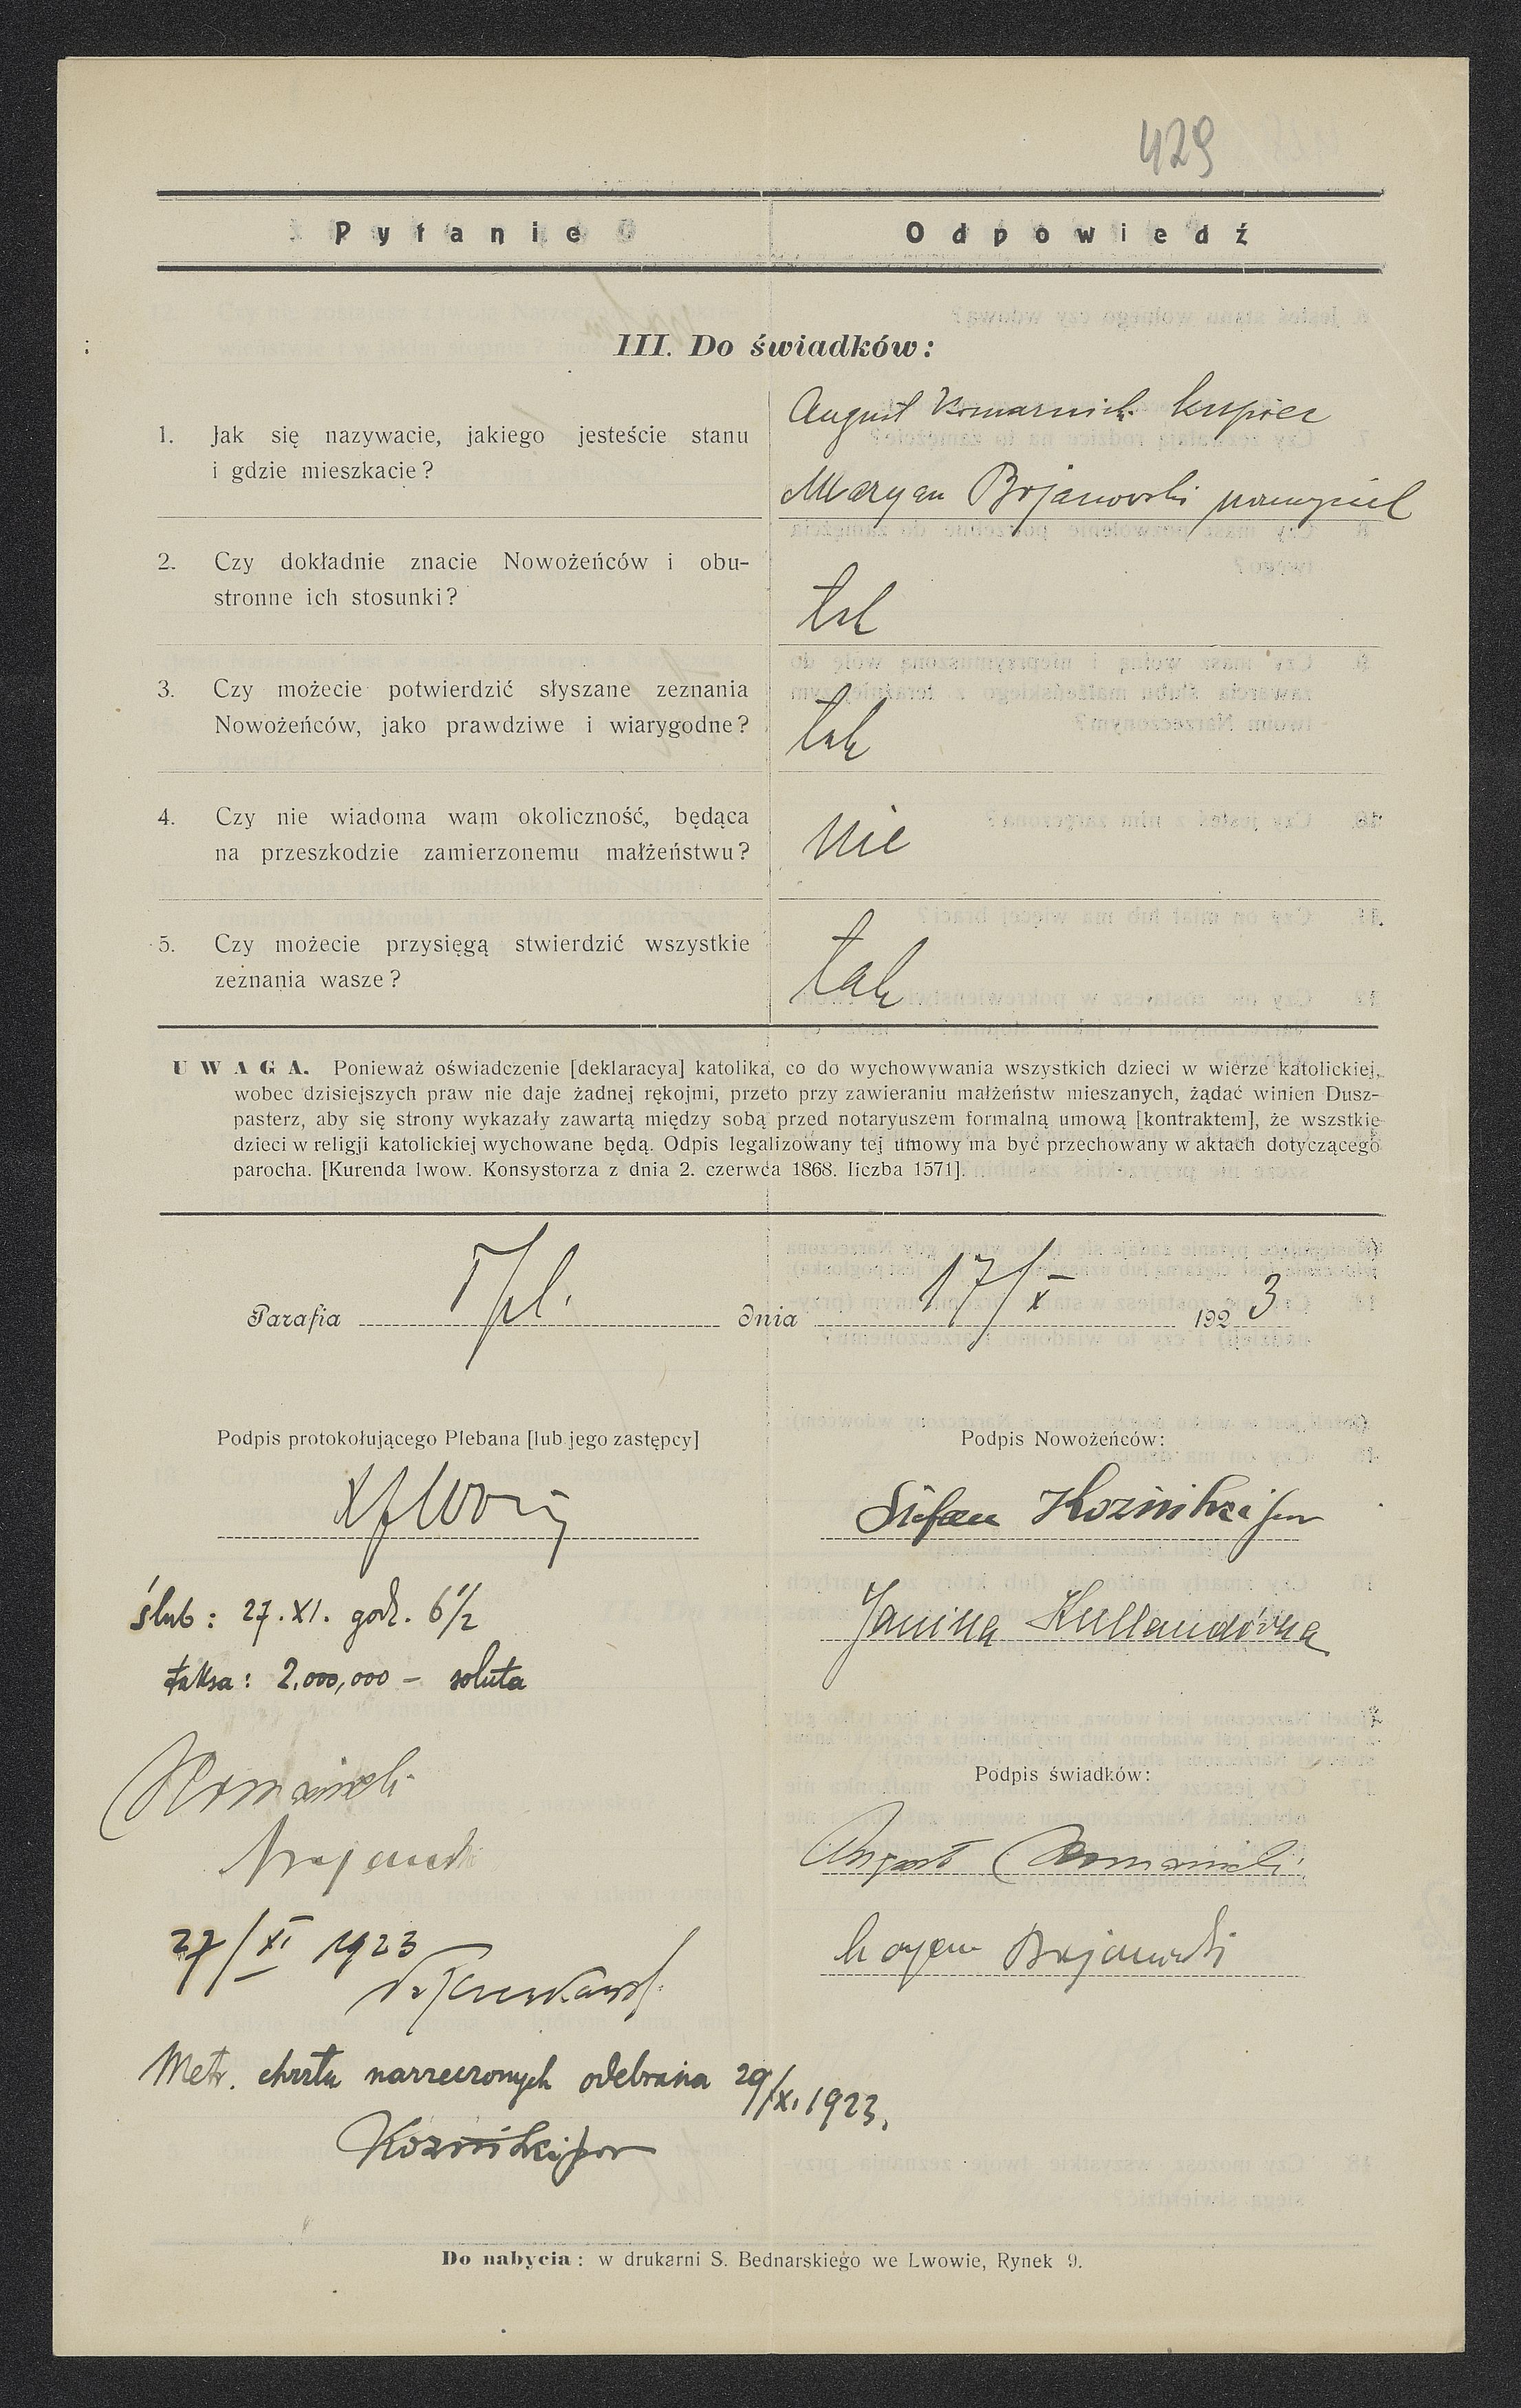 429
Pytanie Odpowiedź
III. Do świadków:
August Komarnicki kupiec
1. Jak się nazywacie, jakiego jesteście stanu
i gdzie mieszkacie?
Maryan Bojanowski
2. Czy dokładnie znacie Nowożeńców i obu-
stronne ich stosunki?
tak
3. Czy możecie potwierdzić słyszane zeznania
Nowożeńców, jako prawdziwe i wiarygodne?
tak
4. Czy nie wiadoma wam okoliczność, będąca
na przeszkodzie zamierzonemu małżeństwu?
nie
5. Czy możecie przysięgą stwierdzić wszystkie
zeznania wasze?
tak
UWAGA. Ponieważ oświadczenie [deklaracya] katolika, co do wychowywania wszystkich dzieci w wierze katolickiej,
wobec dzisiejszych praw nie daje żadnej rękojmi, przeto przy zawieraniu małżeństw mieszanych, żądać winien Dusz-
pasterz, aby się strony wykazały zawartą między sobą przed notaryuszem formalną umową [kontraktem], że wszstkie
dzieci w religji katolickiej wychowane będą. Odpis legalizowany tej umowy ma być przechowany w aktach dotyczącego
parocha. [Kurenda lwow. Konsystorza z dnia 2. czerwca 1868. liczba 1571].
Parafia dnia 17/X 1923
Podpis protokołującego Plebana [lub jego zastępcy] Podpis Nowożeńców:
Stefan
Janina Kullandówna
ślub: 27.XI. godz. 6 1/2
taksa: 2.000,000 – soluta
Podpis świadków:
August Komarnicki
Maryan Bojanowski
27/XI 1923
Metr. chrztu narzeczonych odebrana 29/XI 1923.
Do nabycia: w drukarni S. Bednarskiego we Lwowie, Rynek 9.